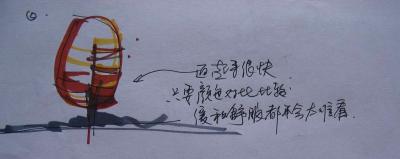 画起来很快
只要颜色对比比较
缓和舒服都不会太难看.